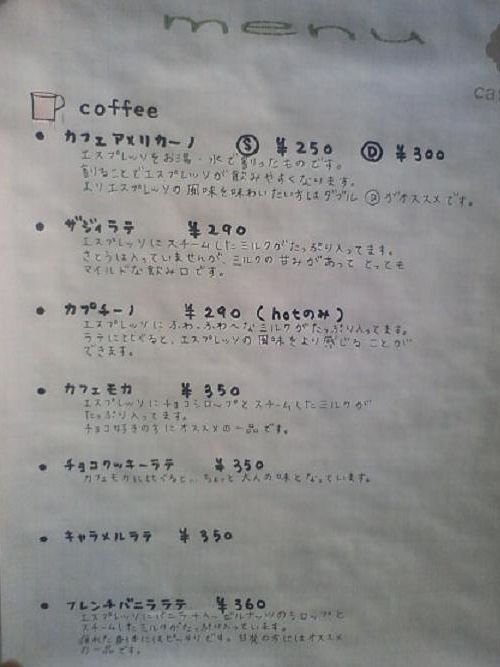 menu
ca
coffee
カフェアメリカーノ Ⓢ ¥250 Ⓓ ¥300
エスプレッソをお湯・水で割ったものです。
割ることでエスプレッソが飲みやすくなります。
よりエスプレッソの風味を味わいたい方はダブル Ⓓ がオススメです。
ザジィラテ ¥290
エスプレッソにスチームしたミルクがたっぷり入ってます。
さとうは入っていませんが、ミルクの甘みがあって とっても
マイルドな飲み口です。
カプチーノ ¥290 (hotのみ)
エスプレッソに ふわふわ〜なミルクがたっぷり入ってます。
ラテにくらべると、エスプレッソの風味をより感じることが
できます。
カフェモカ ¥350
エスプレッソにチョコシロップとスチームしたミルクが
たっぷり入ってます。
チョコ好きの方にオススメの一品です。
チョコクッキーラテ ¥350
カフェモカに比べると、ちょっと大人の味となっています。
キャラメルラテ ¥350
フレンチバニララテ ¥360
エスプレッソにバニラ ヘーゼルナッツのシロップと
スチームしたミルクがたっぷり入っています。
疲れた身体にはピッタリです。甘党の方にはオススメ
の一品です。